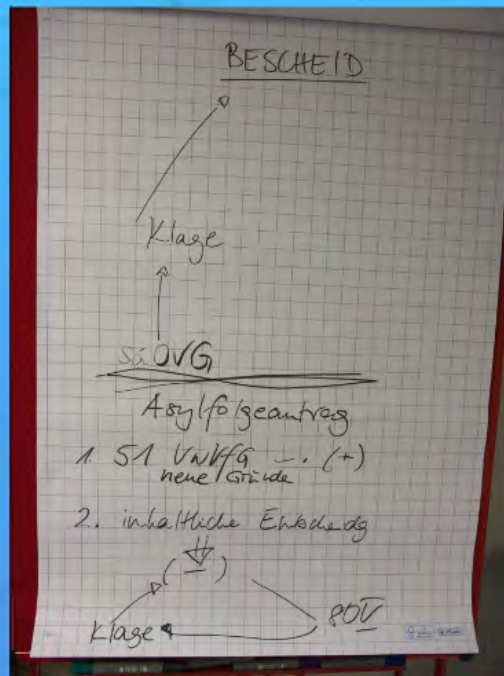 BESCHEID
Klage
OVG
Asylfolgeantrag
1. 51 VwVfG ... (+)
neue Gründe
2. inhaltliche Entscheidg
Klage
80V